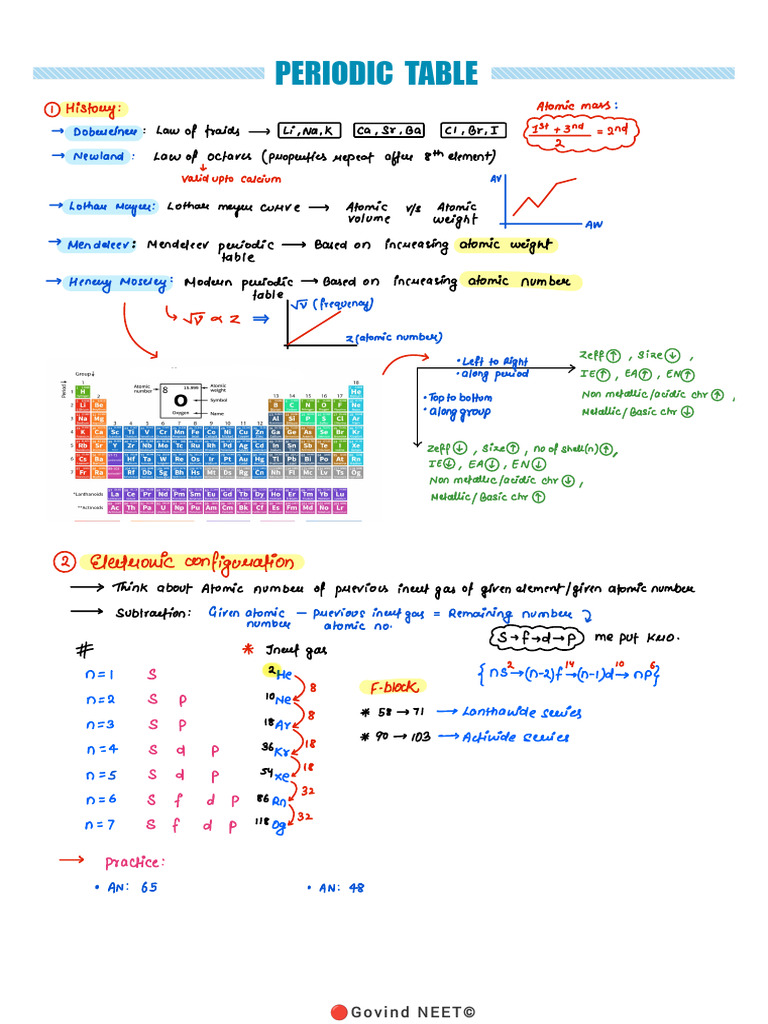 PERIODIC TABLE
① History:
Atomic mass:
→ Dobereiner: Law of traids → Li, Na, K Ca, Sr, Ba Cl, Br, I
1st + 3nd / 2 = 2nd
→ Newland: Law of octaves (properties repeat after 8th element)
valid upto calcium
AV
→ Lothar Mayer: Lothar meyer curve → Atomic volume v/s Atomic weight
AW
→ Mendeleev: Mendeleev periodic table → Based on increasing atomic weight
→ Henery Moseley: Modern periodic table → Based on increasing atomic number
√ν ∝ Z ⇒
√ν (frequency)
Z (atomic number)
• Left to Right
• along period
Zeff↑, Size↓,
IE↑, EA↑, EN↑
Non metallic/acidic chr↑,
Metallic/Basic chr↓
• Top to bottom
• along group
Zeff↓, Size↑, no of shell(n)↑,
IE↓, EA↓, EN↓
Non metallic/acidic chr↓,
Metallic/Basic chr↑
Group
Period
1 18
H 2 13 14 15 16 17 He
Atomic number
8 15.999
O
Oxygen
Atomic weight
Symbol
Name
Li Be B C N O F Ne
Na Mg 3 4 5 6 7 8 9 10 11 12 Al Si P S Cl Ar
K Ca Sc Ti V Cr Mn Fe Co Ni Cu Zn Ga Ge As Se Br Kr
Rb Sr Y Zr Nb Mo Tc Ru Rh Pd Ag Cd In Sn Sb Te I Xe
Cs Ba Hf Ta W Re Os Ir Pt Au Hg Tl Pb Bi Po At Rn
Fr Ra Rf Db Sg Bh Hs Mt Ds Rg Cn Nh Fl Mc Lv Ts Og
*Lanthanoids La Ce Pr Nd Pm Sm Eu Gd Tb Dy Ho Er Tm Yb Lu
**Actinoids Ac Th Pa U Np Pu Am Cm Bk Cf Es Fm Md No Lr
② Electronic configuration
→ Think about Atomic number of previous inert gas of given element/given atomic number
→ Subtraction: Given atomic number − previous inert gas atomic no. = Remaining number
S→f→d→p me put kro.
{ns²→(n-2)f¹⁴→(n-1)d¹⁰→np⁶}
# * Inert gas
n=1 S
n=2 S p
n=3 S p
n=4 S d p
n=5 S d p
n=6 S f d p
n=7 S f d p
2He
8
10Ne
8
18Ar
18
36Kr
18
54Xe
32
86Rn
32
118Og
F-block
* 58→71 → Lanthanide series
* 90→103 → Actinide series
→ Practice:
• AN: 65 • AN: 48
Govind NEET©